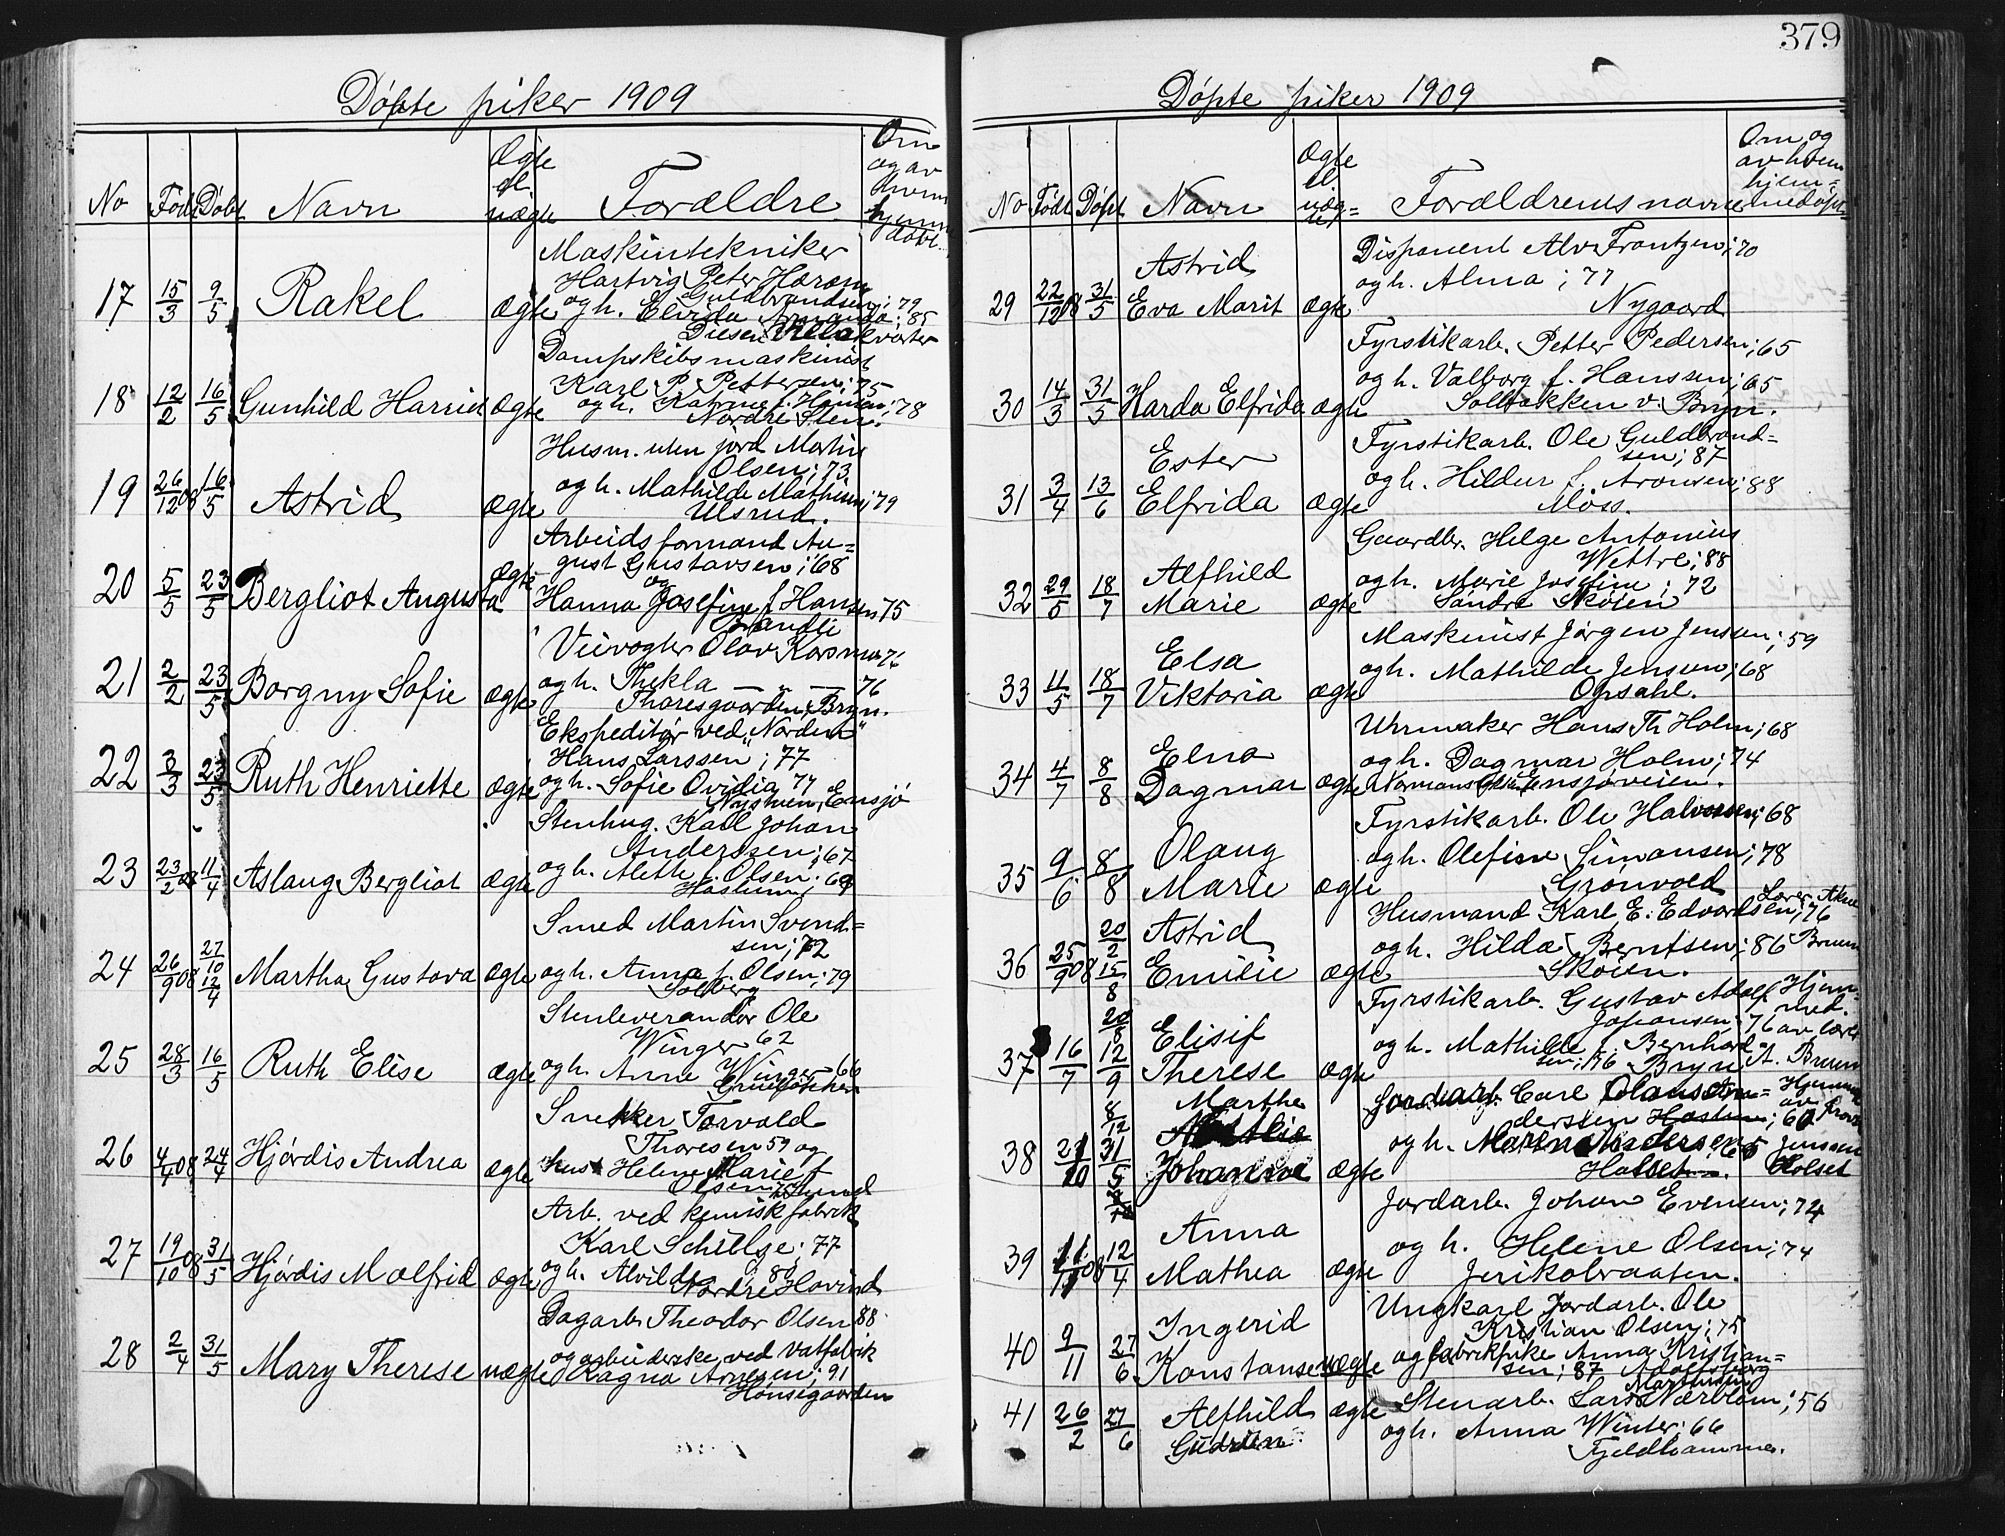 379
Døpte piker 1909
No Født Døbt Navn Ægte el. uægte Forældre Om og av hvem hjemmedøbt
17 15/3 9/5 Rakel ægte Maskintekniker
Hartvig Peter Harem
Guldbrandsen; 79
og h. Elvida Amanda; 85
18 12/2 16/5 Gunhild Harriet Ægte Dampskibsmaskinist
Karl P. Pettersen; 75
og h. Katrine f. Hansen; 78
Nordre Sten.
19 26/12 08 16/5 Astrid ægte Husm. uten jord Martin
Olsen; 73
og h. Mathilde Mathisen; 79
Ulsrud.
20 5/5 23/5 Bergliot Augusta ægte Arbeidsformand Au=
gust Gustavsen; 68
og
Hanna Josefine f. Hansen 75
21 2/2 23/5 Borgny Sofie ægte Veivogter Olav
og h. Thekla — " — 76
Thoresgaarden, Bryn.
22 3/3 23/5 Ruth Henriette ægte Ekspeditør ved "Norden"
Hans Larssen; 77
og h. Sofie Ovidia 77
Ensjø
23 23/2 08 11/4 Aslaug Bergliot ægte Stenhug. Karl Johan
Anderssen; 67
og h. Alette f. Olsen; 69
24 26/9 08 27/10 12/4 Martha Gustava ægte Smed Martin Svend=
sen; 72
og h. Anna f. Olsen; 79
Solberg
25 28/3 16/5 Ruth Elise ægte Stenleverandør Ole
Winger 62
og h. Anne Winger 66
26 4/4 08 24/4 Hjørdis Andrea ægte Snekker Torvald
Thoresen 59 og
hust Helene Marie f.
Olsen
27 19/10 08 31/5 Hjørdis Malfrid ægte Arb. ved kemisk fabrik
Karl Schillge; 77
og h. Alvilde 80
Nordre Hovind
28 2/4 31/5 Mary Therese uægte Dagarb. Theodor Olsen 88.
og arbeiderske ved Vatfabrik
Ragna Arnesen; 91
Hønsegaarden
Døpte piker 1909
No Født Døpt Navn Ægte el uæg= te Forældrenes navne Om og av hvem hjem= medøpt
29 22/12 08 31/5 Astrid Eva Marit ægte Disponent Alv Frantzen; 70
og h. Alma; 77
Nygaard
30 14/3 31/5 Harda Elfrida ægte Fyrstikarb. Petter Pedersen; 65
og h. Valborg f. Hanssen; 65
Solbakken v. Bryn.
31 3/4 13/6 Ester Elfrida ægte Fyrstikarb. Ole Guldbrand=
sen; 87
og h. Hildur f. Aronsen; 88
Moss.
32 29/5 18/7 Alfhild Marie ægte Gaardbr. Helge Antonius
Wettre; 88
og h. Marie Josefine; 72
Søndre Skøien
33 4/5 18/7 Elsa Viktoria ægte Maskinist Jørgen Jenssen; 59
og h. Mathilde Jensen; 68
Opsahl.
34 4/7 8/8 Elna Dagmar ægte Uhrmaker Hans Th Holm; 68
og h. Dagmar Holm; 74
Ensjøveien.
35 9/6 8/8 Olaug Marie ægte Fyrstikarb. Ole Halvorsen; 68
og h. Olefine Simonsen; 78
Grønvold
36 25/9 08 20/2 15/8 Astrid Emilie ægte Husmand Karl E. Edvardsen; 76
og h. Hilda Berntsen; 86
Skøien.
Lærer
Bruun
37 16/7 20/8 12/9 Elisif Therese ægte Fyrstikarb. Gustav Adolf
Johansen; 76
og h. Mathilde f. Bernhard=
sen; 86 Bryn
Hjem=
med.
av lærer
A. Bruun
38 21/10 8/12 31/5 Marthe Johanne ægte Jordarb. Carl Olaus An=
dersen; 60
og h. Maren Andersen 65
Hjemmed.
av
Jensen
39 11/11 08 12/4 Anna Mathea ægte Jordarb. Johan Evensen; 74
og h. Helene Olsen; 74
Jerikobraaten.
40 9/11 27/6 Ingerid Konstanse uægte Ungkarl Jordarb. Ole
Kristian Olsen; 75
og fabrikpike Anna Kristian=
sen; 87
41 26/2 27/6 Alfhild Gudrun ægte Stenarb. Lars Nærblom; 56
og h. Anna Winter; 66
Fjeldhammer.